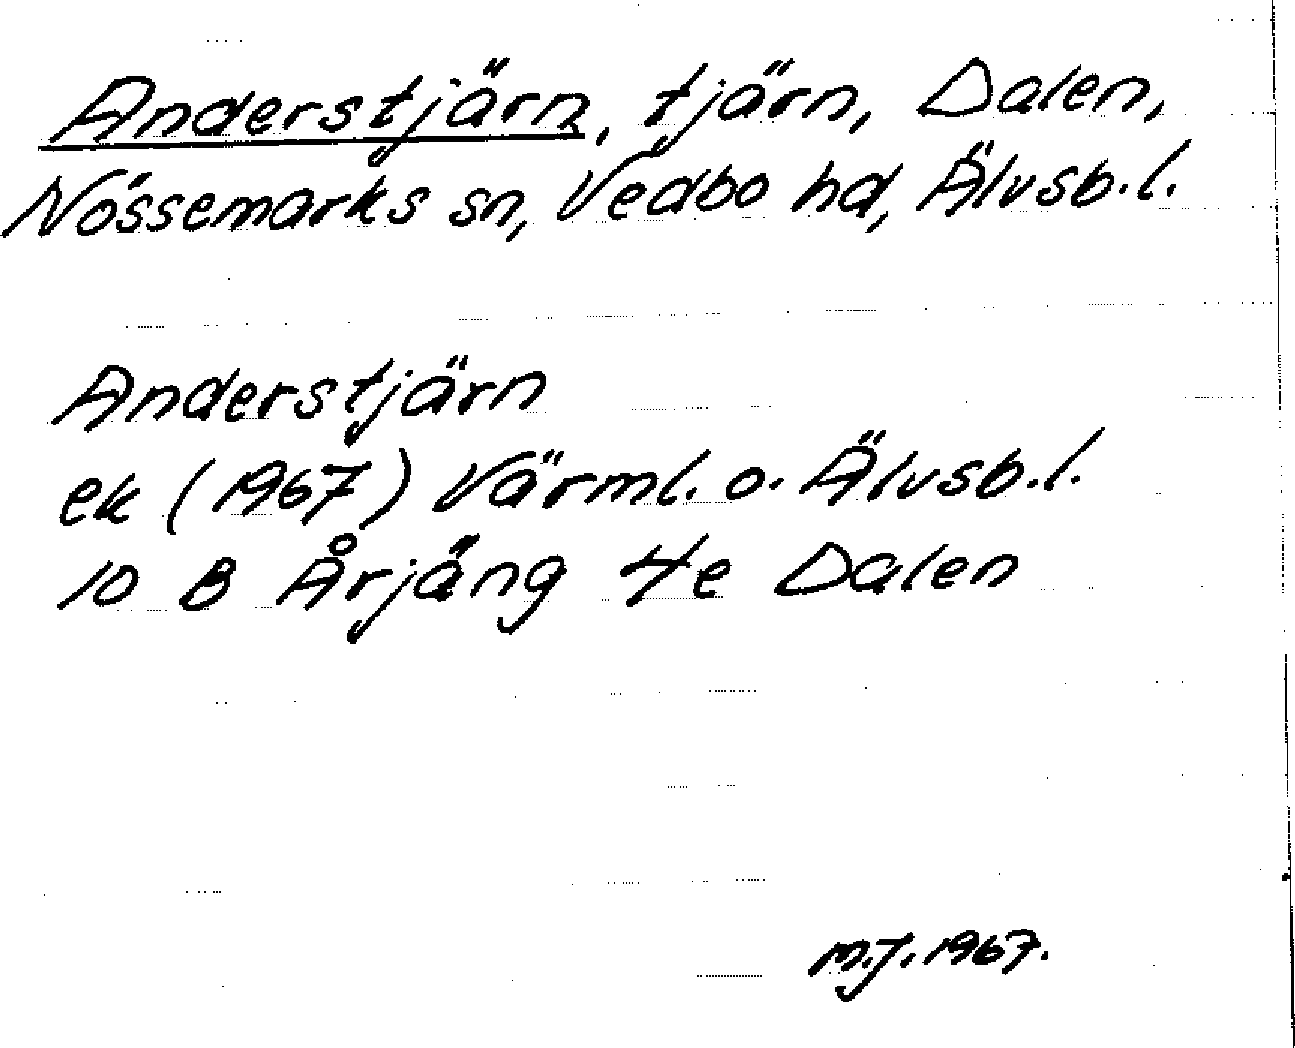 Anderstjärn, tjärn, Dalen,
Nössemarks sn, Vedbo hd, Älvsb.l.
Anderstjärn
ek (1967) Värml. o. Älvsb.l.
10 B Årjäng 4e Dalen
M.J. 1967.